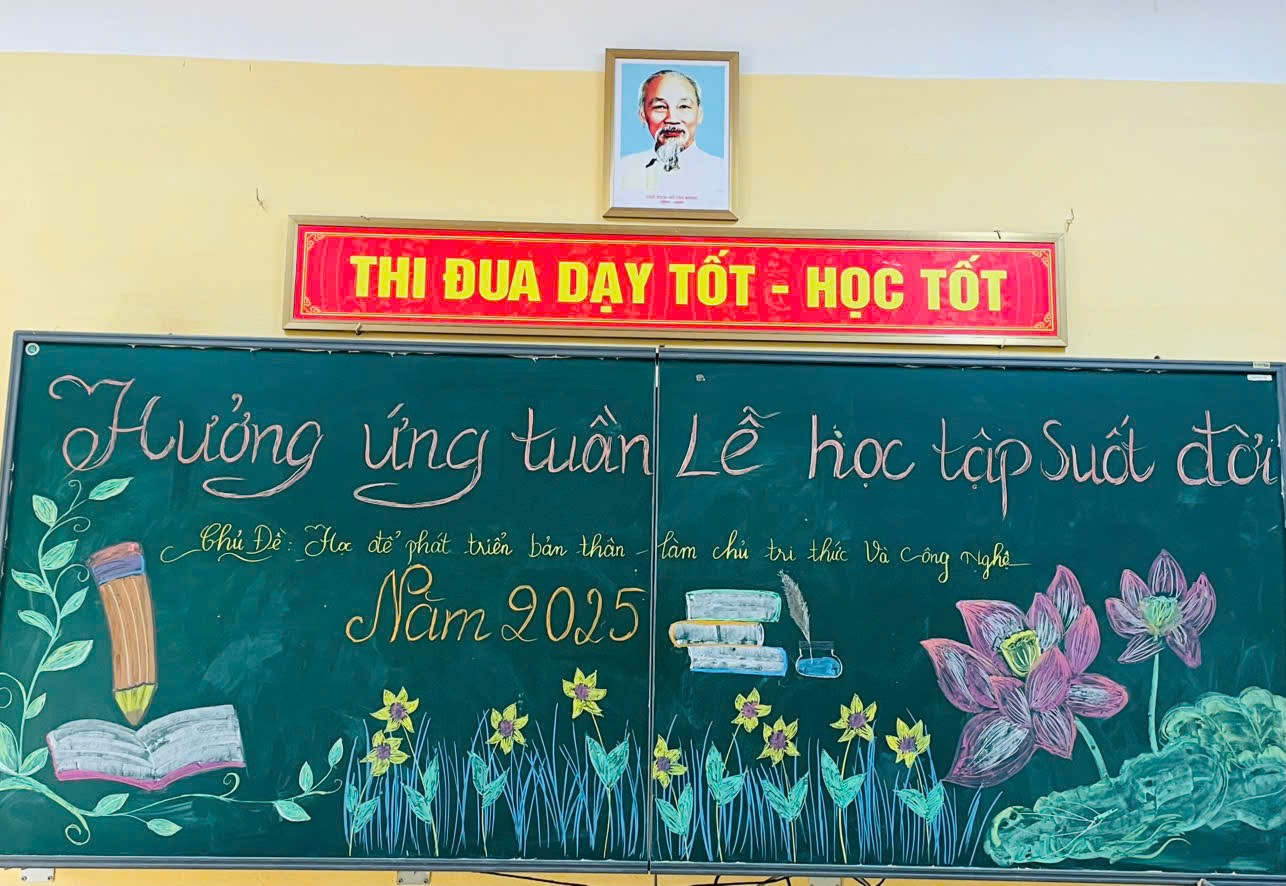 CHỦ TỊCH HỒ CHÍ MINH
THI ĐUA DẠY TỐT - HỌC TỐT
Hưởng ứng tuần Lễ học tập Suốt đời
Chủ Đề: Học để phát triển bản thân - làm chủ tri thức Và Công Nghệ
Năm 2025